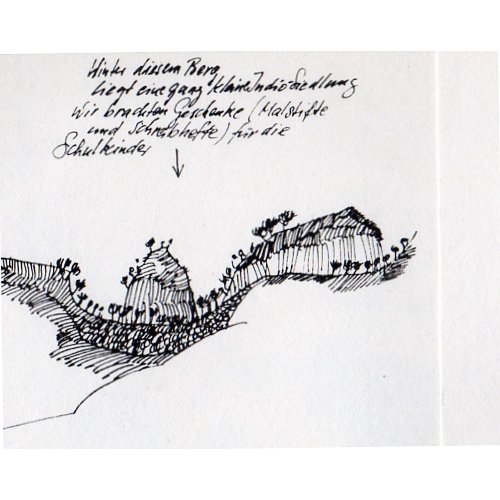 Hinter diesem Berg
liegt eine ganz kleine Indio-Siedlung
Wir brachten Geschenke (Malstifte
und Schreibhefte) für die
Schulkinder